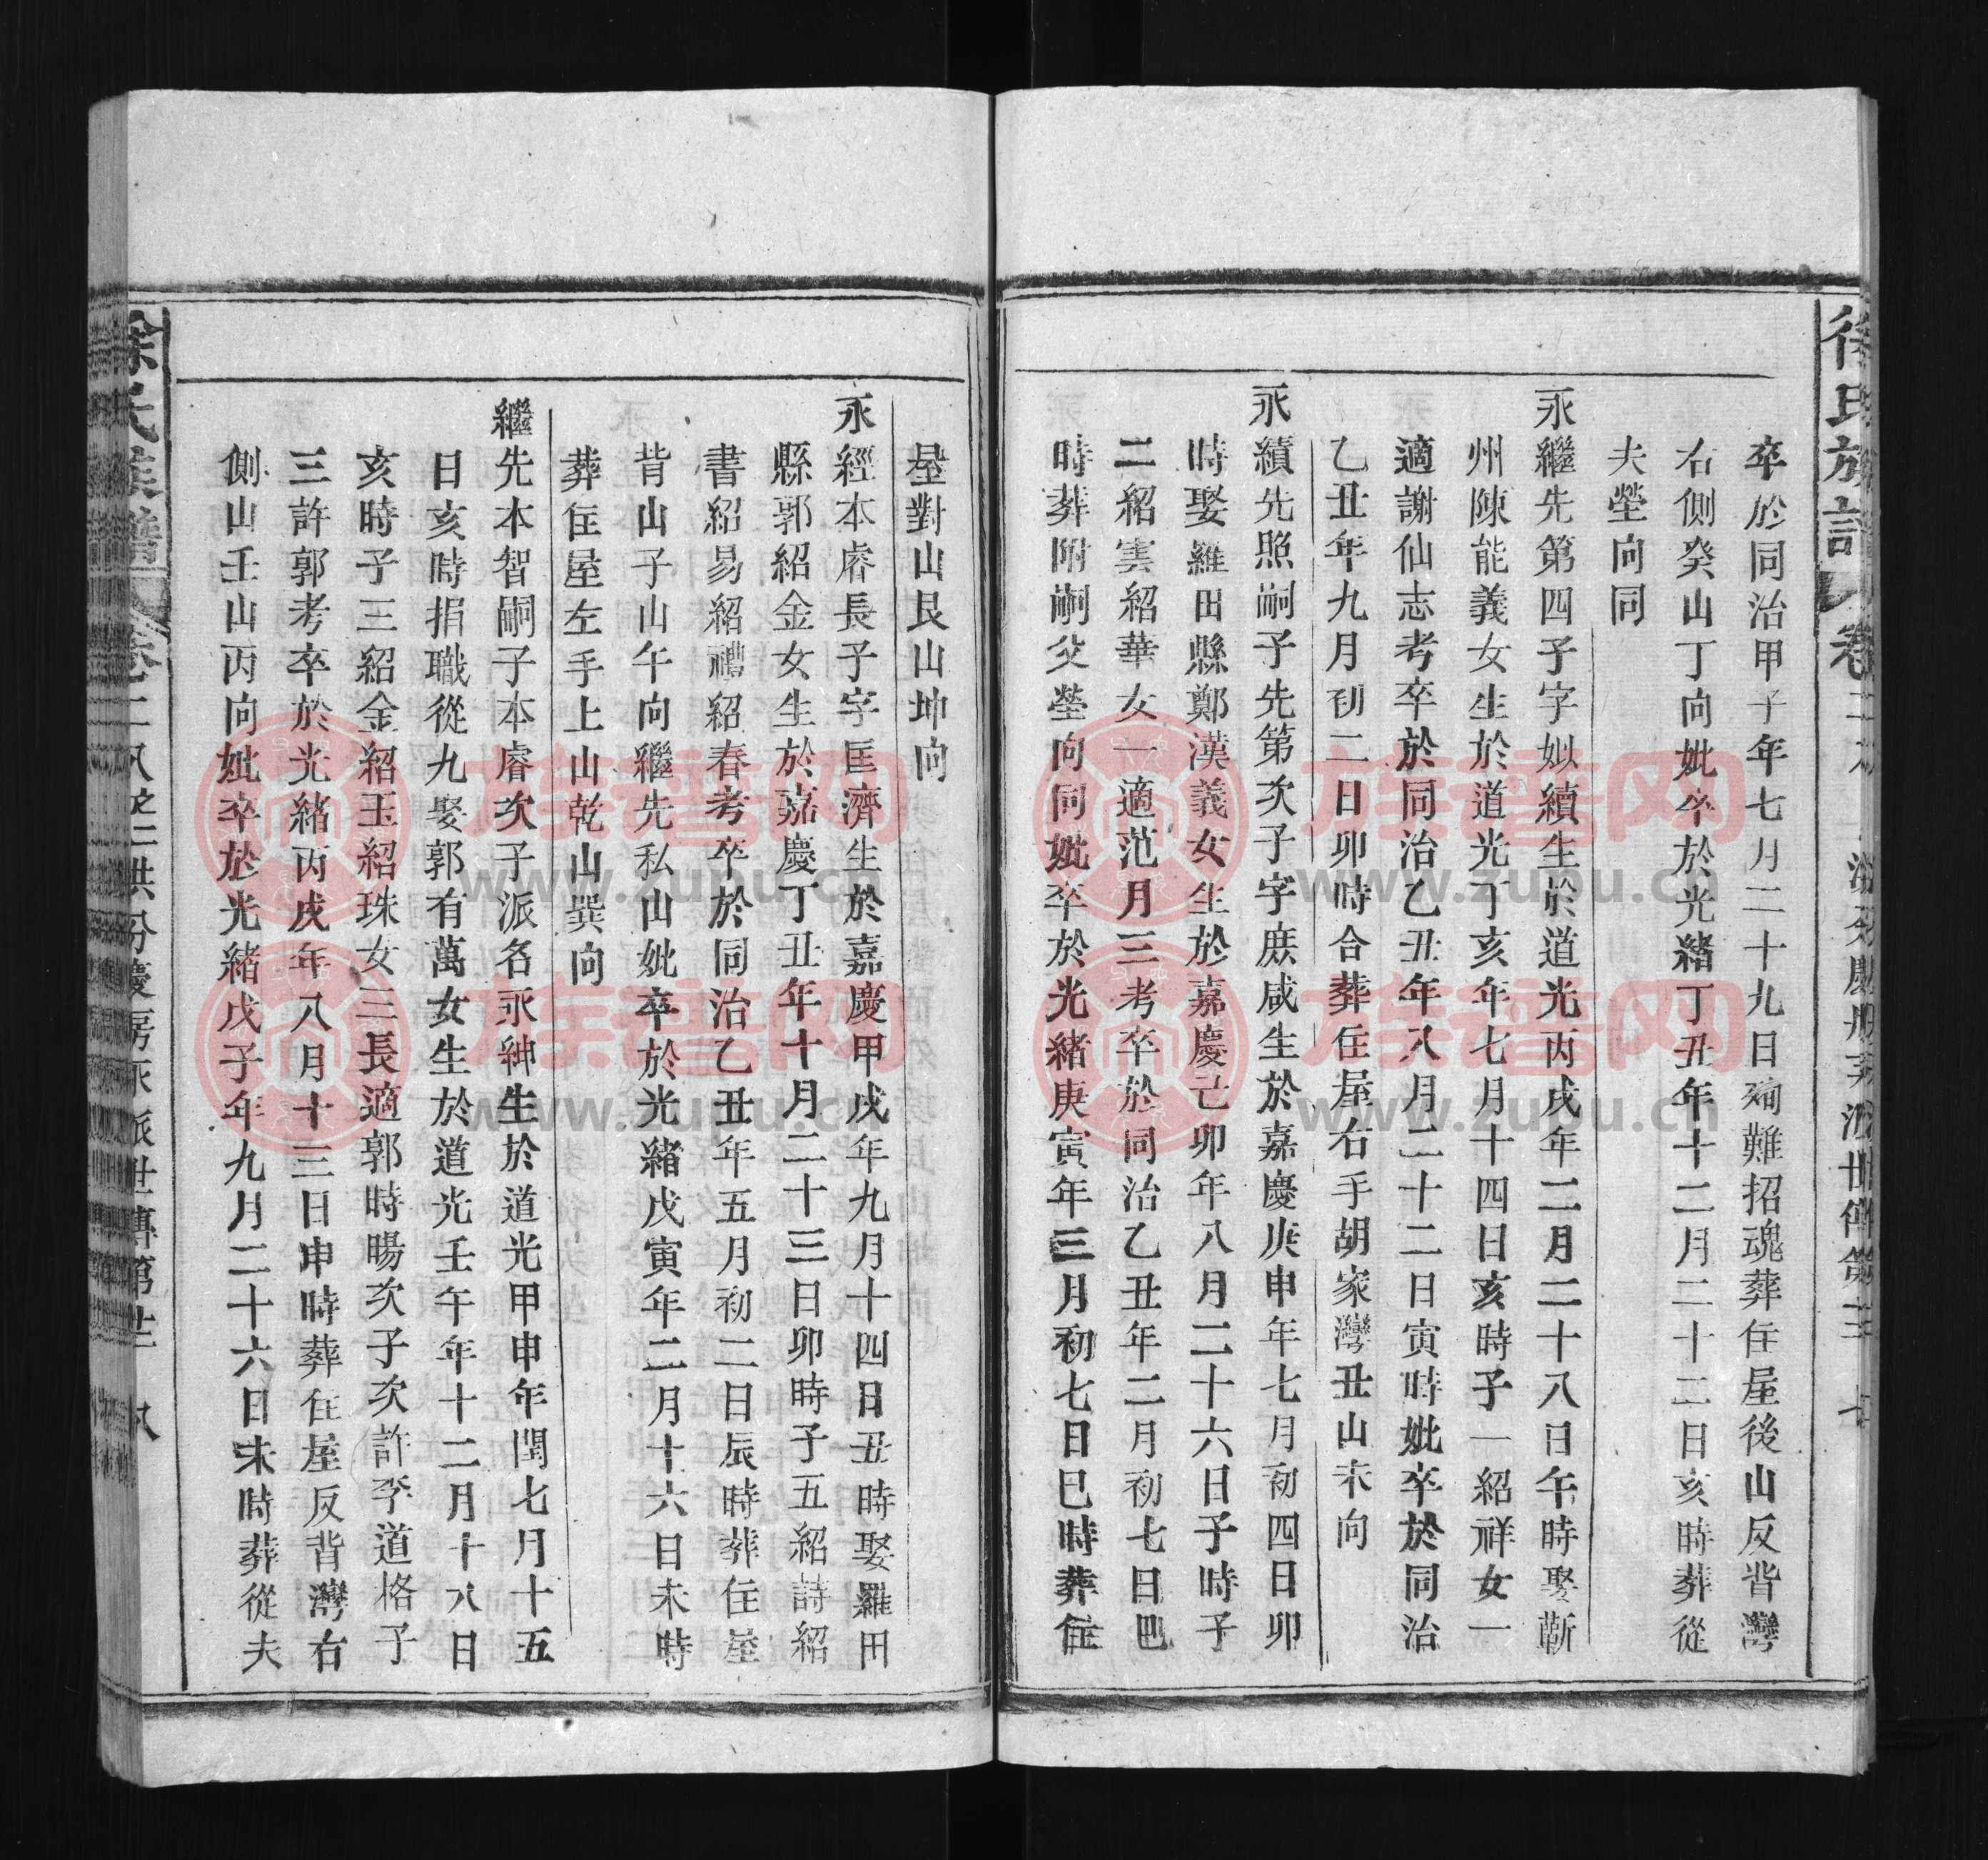 徐氏族譜
卒於同治甲子年七月二十九日殉難招魂葬住屋後山反背灣
右側癸山丁向妣卒於光緒丁丑年十二月二十二日亥時葬從
夫塋向同
永繼先第四子字姒續生於道光丙戌年二月二十八日午時娶蘄
州陳能義女生於道光丁亥年七月十四日亥時子一紹祥女一
適謝仙志考卒於同治乙丑年八月二十二日寅時妣卒於同治
乙丑年九月初二日卯時合葬住屋右手胡家灣丑山未向
永續先照嗣子先第次子字庶咸生於嘉慶庚申年七月初四日卯
時娶羅田縣鄭漢義女生於嘉慶己卯年八月二十六日子時子
二紹寅紹華女一適范月三考卒於同治乙丑年二月初七日巳
時葬附嗣父塋向同妣卒於光緒庚寅年三月初七日巳時葬住
屋對山艮山坤向
永經本睿長子字匡濟生於嘉慶甲戌年九月十四日丑時娶羅田
縣郭紹金女生於嘉慶丁丑年十月二十三日卯時子五紹詩紹
書紹易紹禮紹春考卒於同治乙丑年五月初二日辰時葬住屋
背山子山午向繼先私山妣卒於光緒戊寅年二月十六日未時
葬住屋左手上山乾山巽向
繼先本智嗣子本睿次子派名永紳生於道光甲申年閏七月十五
日亥時捐職從九娶郭有萬女生於道光壬午年十二月十八日
亥時子三紹金紹玉紹珠女三長適郭時暘次子次許李道格子
三許郭考卒於光緒丙戌年八月十三日申時葬住屋反背灣右
側山壬山丙向妣卒於光緒戊子年九月二十六日未時葬從夫
徐氏族譜 卷二 八之二洪分慶房永派世傳第廿 八
族譜网
www.zupu.cn
族譜网
www.zupu.cn
族譜网
www.zupu.cn
族譜网
www.zupu.cn